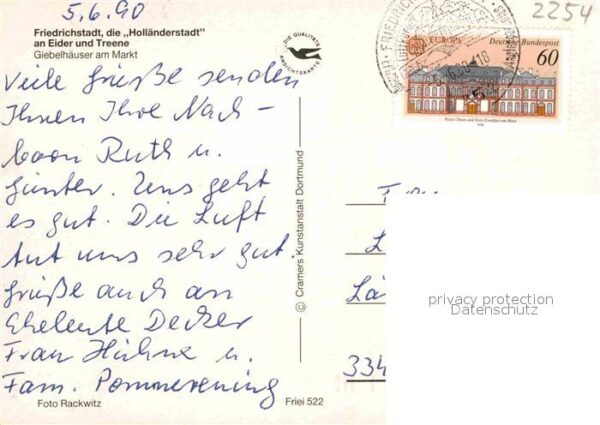 5.6.90
2254
Friedrichstadt, die „Holländerstadt"
an Eider und Treene
Giebelhäuser am Markt
DIE QUALITÄTS
ANSICHTSKARTE
EUROPA Deutsche Bundespost
60
Palais Thurn und Taxis Frankfurt am Main
1990
Viele Grüße senden
Ihnen Ihre Nach-
barn Ruth u.
Günter. Uns geht
es gut. Die Luft
tut uns sehr gut.
Grüße auch an
Eheleute Decker
Frau Hühne u.
Fam. Pommerening
© Cramers Kunstanstalt Dortmund
privacy protection
Datenschutz
334
Foto Rackwitz
Friei 522